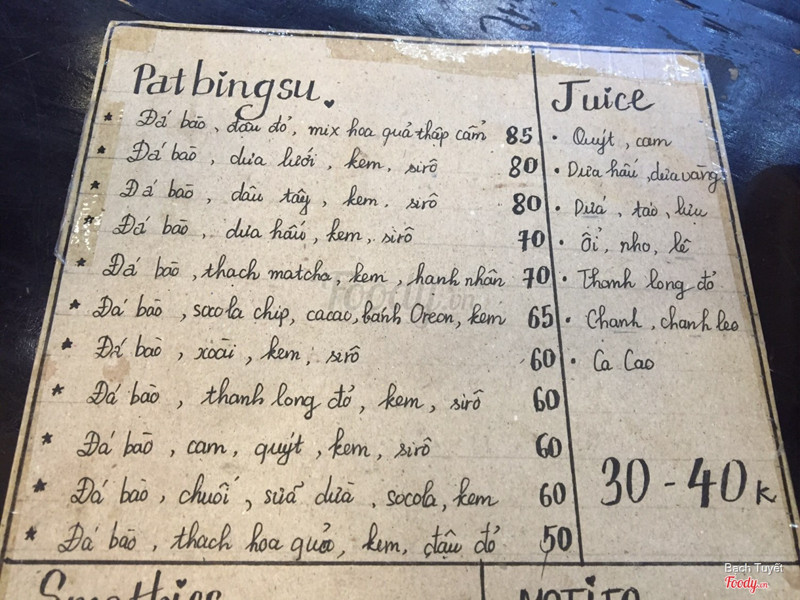 Patbingsu
* Đá bào, đậu đỏ, mix hoa quả thập cẩm 85
* Đá bào, dưa lưới, kem, sirô 80
* Đá bào, dâu tây, kem, sirô 80
* Đá bào, dưa hấu, kem, sirô 70
* Đá bào, thạch matcha, kem, hạnh nhân 70
* Đá bào, socola chip, cacao, bánh Oreon, kem 65
* Đá bào, xoài, kem, sirô 60
* Đá bào, thanh long đỏ, kem, sirô 60
* Đá bào, cam, quýt, kem, sirô 60
* Đá bào, chuối, sữa dừa, socola, kem 60
* Đá bào, thạch hoa quả, kem, đậu đỏ 50
Juice
• Quýt, cam
• Dưa hấu, dưa vàng
• Dứa, táo, lựu
• Ổi, nho, lê
• Thanh long đỏ
• Chanh, chanh leo
• Ca Cao
30 - 40k
Smothies
MOJITO
Foody.vn
Bạch Tuyết
Foody.vn